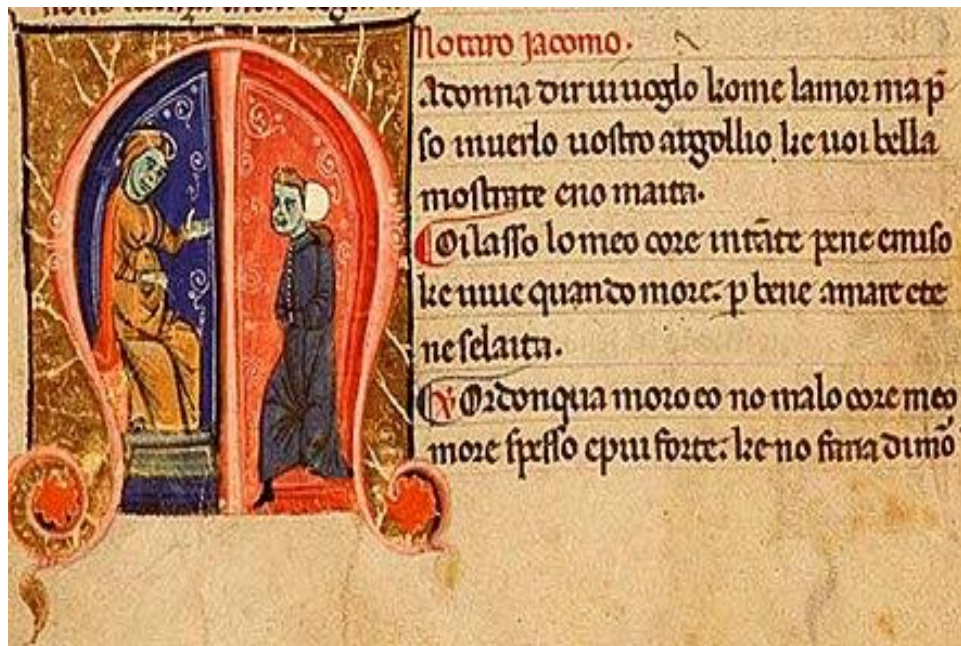 Notaro Jacomo.
MAdonna diruiuoglo kome lamor map̄
so inuerlo uostro argollio. ke uoi bella
mostrate eno maita.
Oilasso lomeo core intāte pene emiso
ke uiue quando more. p bene amare ete
neselaita.
Ordonqua moro eo no malo core meo
more spesso epiu forte. ke no faria dimō